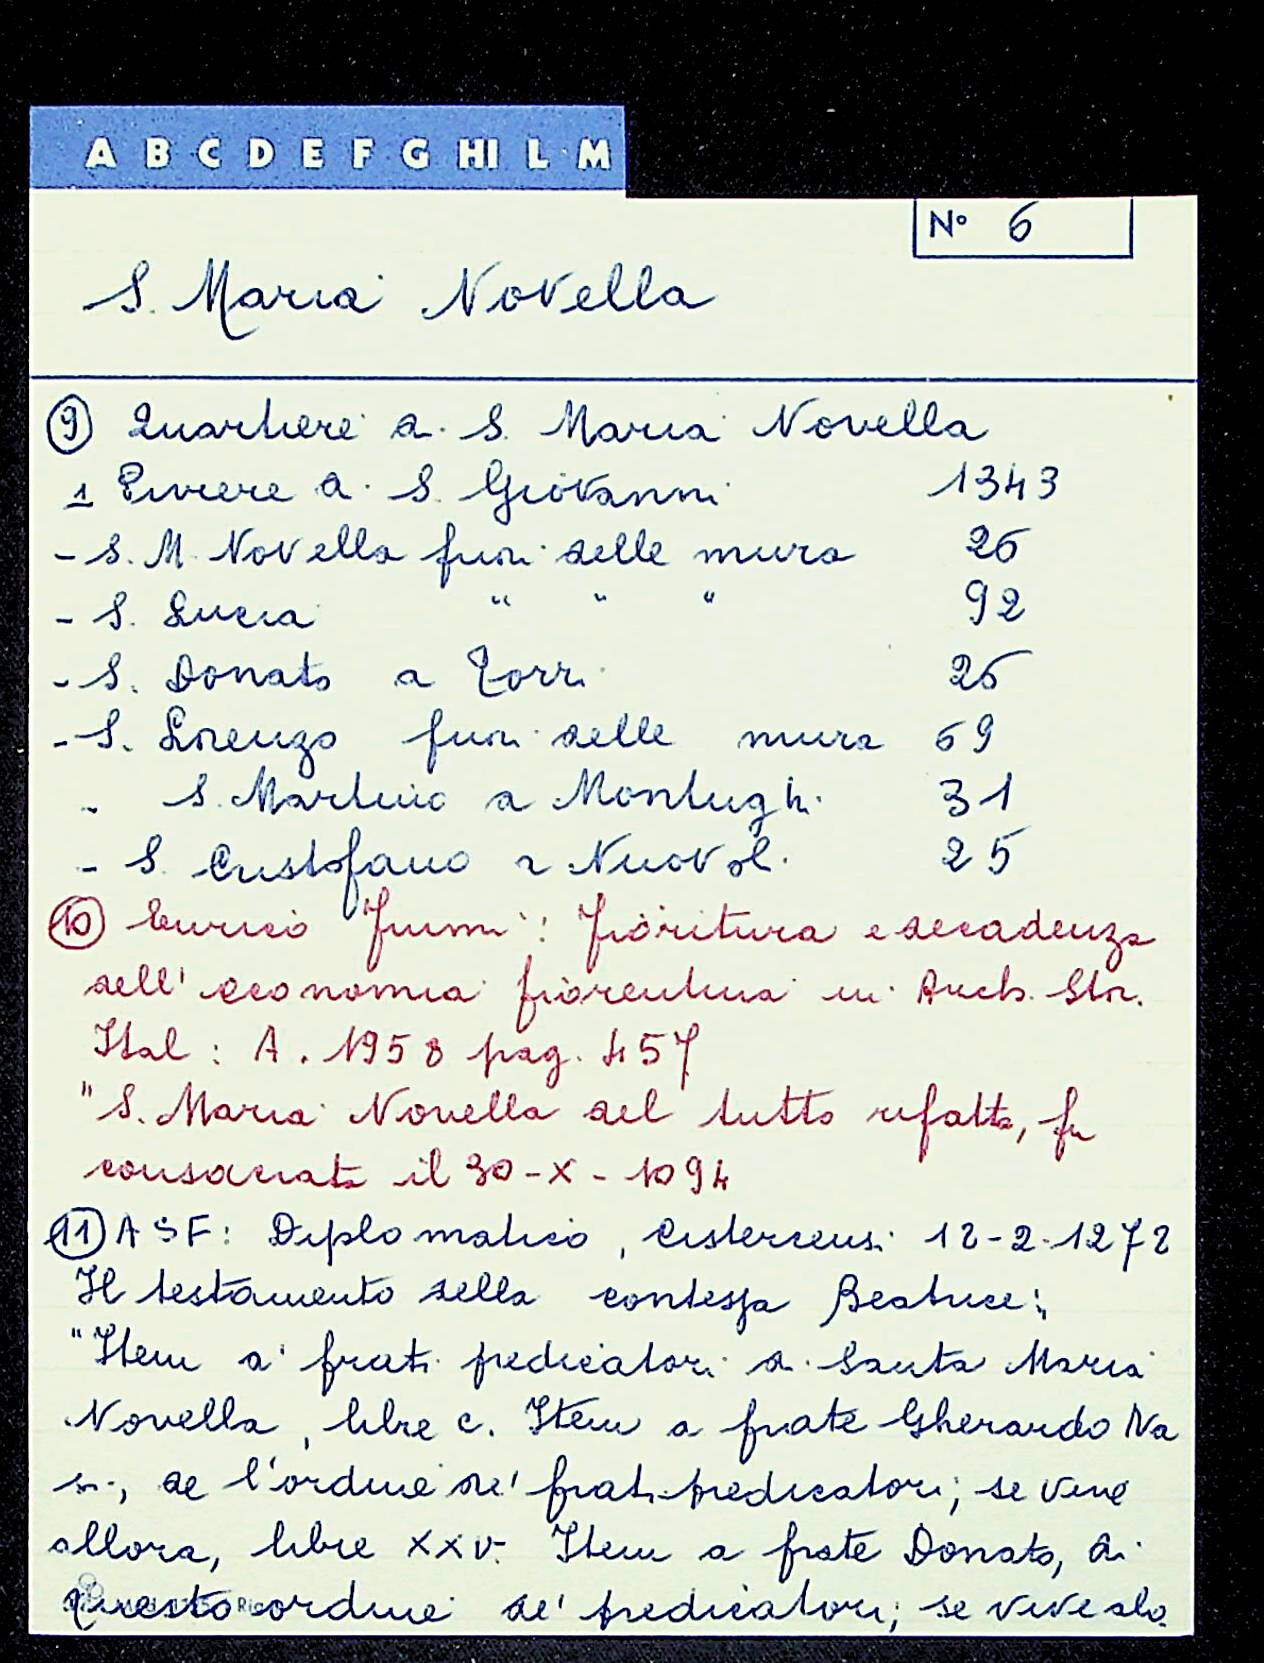 A B C D E F G HI L M
N° 6
S. Maria Novella
⑨ Quartiere di S. Maria Novella
1 Piviere di S. Giovanni 1343
- S. M. Novella fuori delle mura 26
- S. Lucia " " " 92
- S. Donato a Torri 26
- S. Lorenzo fuori delle mura 69
- S. Martino a Montughi 31
- S. Cristofano a Nuovoli 25
⑩ Enrico Fiumi: Fioritura e decadenza
dell'economia fiorentina in Arch. Stor.
Ital: A. 1958 pag. 457
"S. Maria Novella del tutto rifatta, fu
consacrata il 30-X-1094
⑪ ASF: Diplomatico, Cistercensi 12-2-1272
Il testamento della contessa Beatrice:
"Item a' frati predicatori di Santa Maria
Novella, libre c. Item a frate Gherardo Na
si, de l'ordine de' frati predicatori; se vive
allora, libre XXV. Item a frate Donato, di
questo ordine de' predicatori; se vive alo